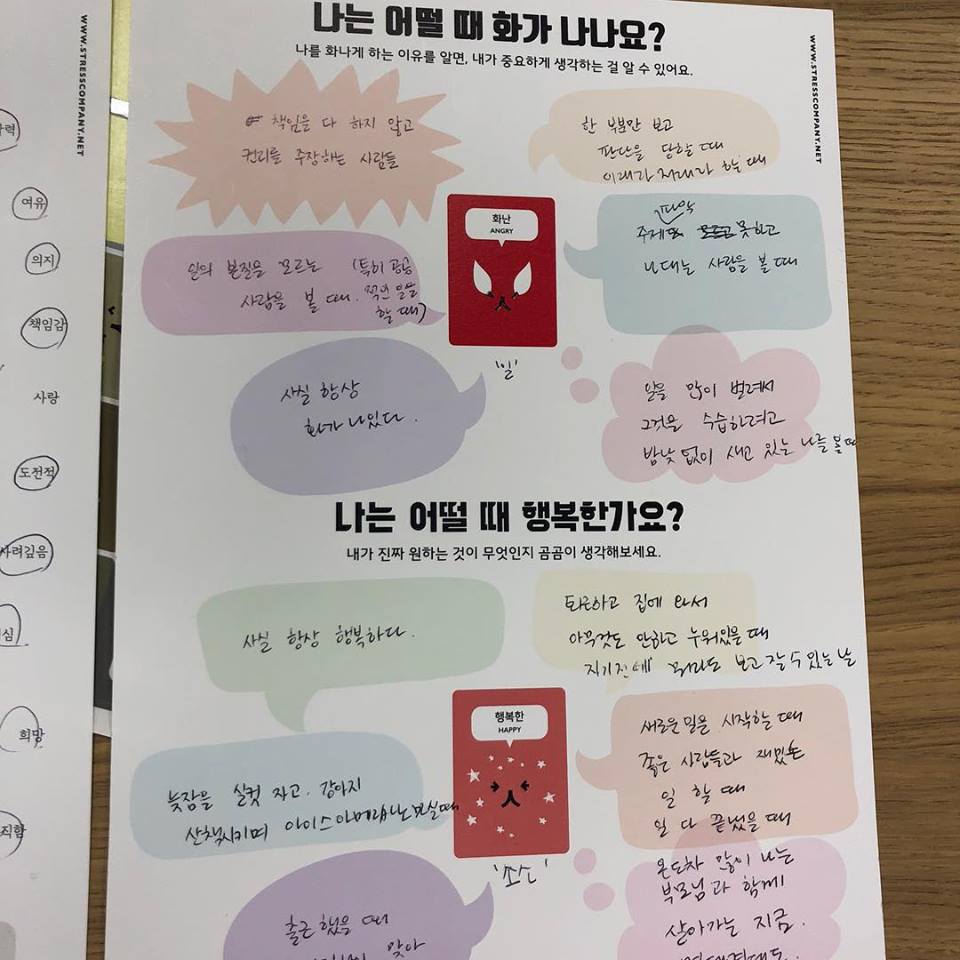 나는 어떨 때 화가 나나요?
나를 화나게 하는 이유를 알면, 내가 중요하게 생각하는 걸 알 수 있어요.
WWW.STRESSCOMPANY.NET
WWW.STRESSCOMPANY.NET
WWW.STRESSCOMPANY.NET
여유
의지
책임감
사랑
도전적
사려깊음
심
희망
직함
책임을 다 하지 않고
권리를 주장하는 사람들
한 부분만 보고
판단을 당할 때
이래라 저래라 할 때
일의 본질을 모르는 (특히 공공
사람을 볼 때. 적인 일을
할 때)
화난
ANGRY
'일'
파악
주제 못하고
나대는 사람을 볼 때
사실 항상
화가 나있다.
일을 많이 벌려서
그것을 수습하려고
밤낮 없이 새고 있는 나를 볼 때
나는 어떨 때 행복한가요?
내가 진짜 원하는 것이 무엇인지 곰곰이 생각해보세요.
사실 항상 행복하다.
퇴근하고 집에 와서
아무것도 안하고 누워있을 때
자기전에 뭐라도 보고 잘 수 있는 날
행복한
HAPPY
'소소'
늦잠을 실컷 자고. 강아지
산책시키며 아이스아메리카노 마실때
새로운 일을 시작할 때
좋은 사람들과 재밌는
일 할 때
일 다 끝났을 때
출근했을 때
맞아
온도차 많이 나는
부모님과 함께
살아가는 지금.